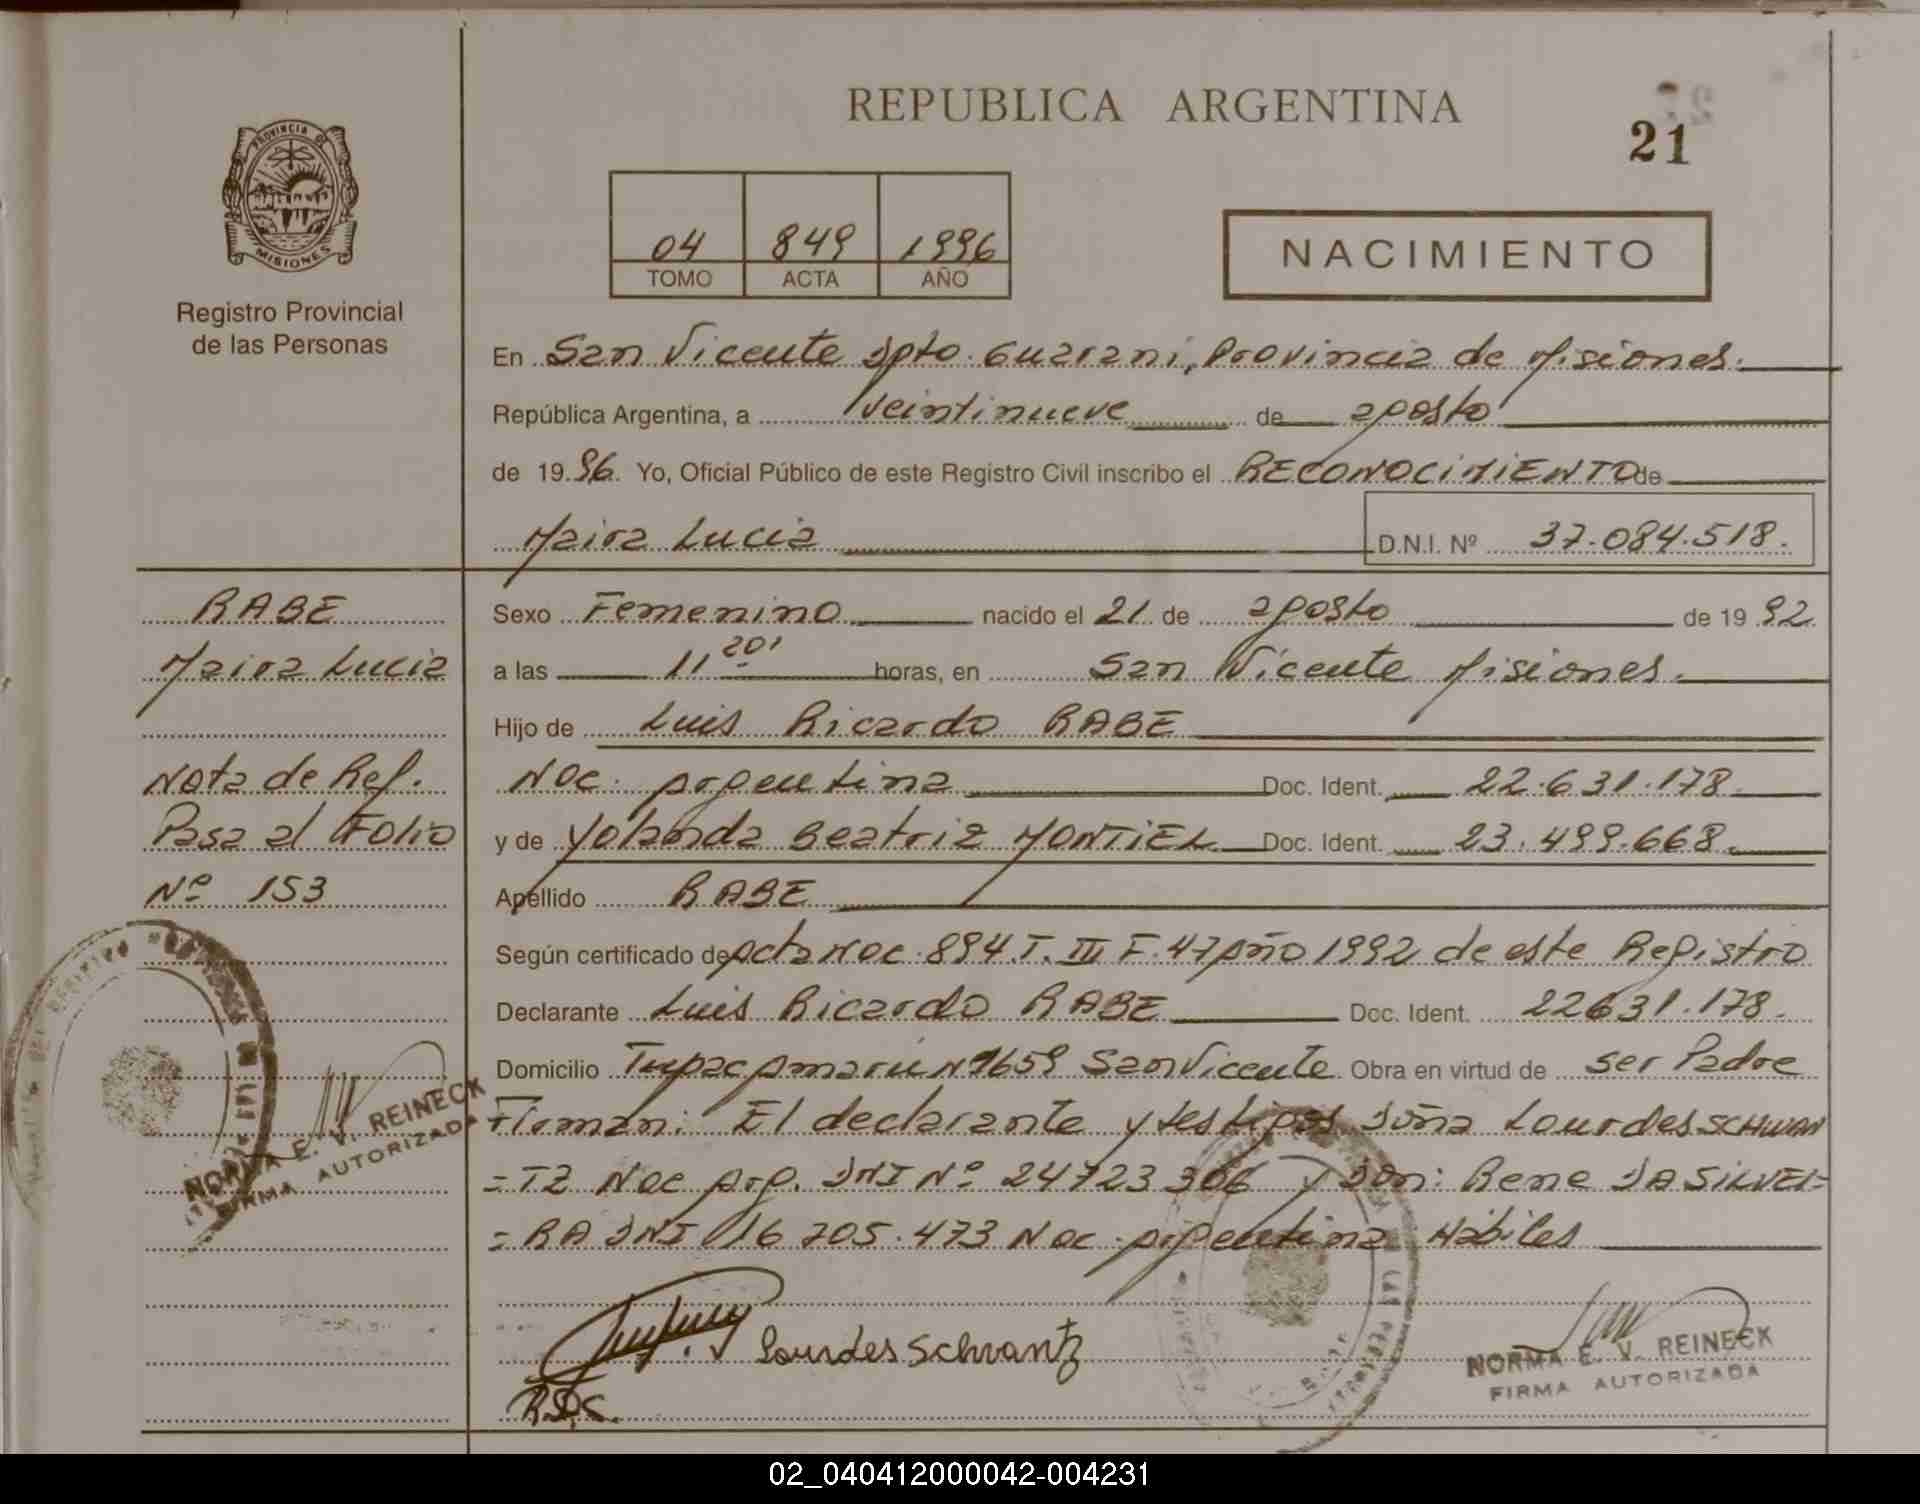 REPUBLICA ARGENTINA
21
04 849 1996
TOMO ACTA AÑO
NACIMIENTO
PROVINCIA DE
MISIONES
Registro Provincial
de las Personas
En San Vicente Dpto. Guarani, Provincia de Misiones.
República Argentina, a veintinueve de agosto
de 19 96. Yo, Oficial Público de este Registro Civil inscribo el RECONOCIMIENTO de
Maira Lucia D.N.I. Nº 37.084.518.
RABE
Maira Lucia
Nota de Ref.
Pasa al Folio
Nº 153
Sexo Femenino nacido el 21 de agosto de 19 92
a las 11 20' horas, en San Vicente Misiones.
Hijo de Luis Ricardo RABE
Nac. Argentina Doc. Ident. 22.631.178.
y de Yolanda Beatriz MONTIEL Doc. Ident. 23.499.668.
Apellido RABE
Según certificado de Acta Nac. 894. T. III F. 47 Año 1992 de este Registro
Declarante Luis Ricardo RABE Doc. Ident. 22631.178.
Domicilio Tupac Amarú Nº 1659 San Vicente Obra en virtud de ser Padre
Firman: El declarante y testigos Doña Lourdes SCHWAN
=TZ Nac Arg. DNI Nº 24723306 y Don: Rene DA SILVEI=
=RA DNI 16 705.473 Nac. Argentina Hábiles
Lourdes Schwantz
R.D.S.
NORMA E. V. REINECK
FIRMA AUTORIZADA
NORMA E. V. REINECK
FIRMA AUTORIZADA
02_040412000042-004231